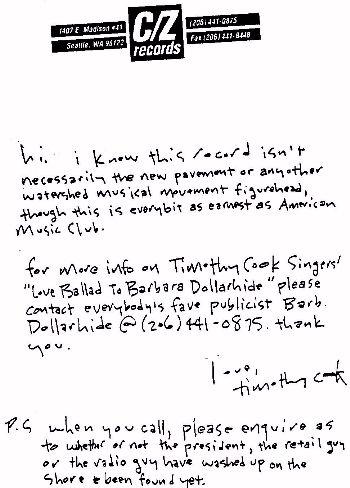 1407 E. Madison #41
Seattle, WA 98122
C/Z
records
(206) 441-0875
Fax (206) 441-8448
hi. i know this record isn't
necessarily the new pavement or anyother
watershed musical movement figurehead,
though this is everybit as earnest as American
Music Club.
for more info on Timothy Cook Singers'
"Love Ballad To Barbara Dollarhide" please
contact everybody's fave publicist Barb.
Dollarhide @ (206) 441-0875. thank
you.
love,
timothy cook
P.S when you call, please enquire as
to whether or not the president, the retail guy
or the radio guy have washed up on the
shore & been found yet.